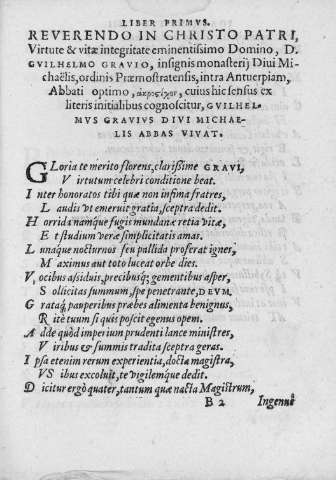 LIBER PRIMVS.
REVERENDO IN CHRISTO PATRI,
Virtute & vitæ integritate eminentissimo Domino, D.
GVILHELMO GRAVIO, insignis monasterij Diui Mi-
chaëlis, ordinis Præmostratensis, intra Antuerpiam,
Abbati optimo, cuius hic sensus ex
literis initialibus cognoscitur, GVILHEL-
MVS GRAVIVS DIVI MICHAE-
LIS ABBAS VIVAT.
GLoria te merito florens, clarissime GRAVI,
Virtutum celebri conditione beat.
Inter honoratos tibi quæ non infima fratres,
Laudis vt emeruit gratia, sceptra dedit.
Horrida namque fugis mundanæ retia vitæ,
Et studium veræ simplicitatis amas.
Lunaque nocturnos seu pallida proferat ignes,
Maximus aut toto luceat orbe dies.
Vocibus assiduis, precibusq; gementibus asper,
Sollicitas summum, spe penetrante, DEVM.
Grataq; pauperibus præbes alimenta benignus,
Rite tuum si quis poscit egenus opem.
Adde quòd imperium prudenti lance ministres,
Viribus & summis tradita sceptra geras.
Ipsa etenim rerum experientia, docta magistra,
VSibus excoluit, te vigilemque dedit.
Dicitur ergò quater, tantum quæ nacta Magistrum,
B 2 Ingenuè